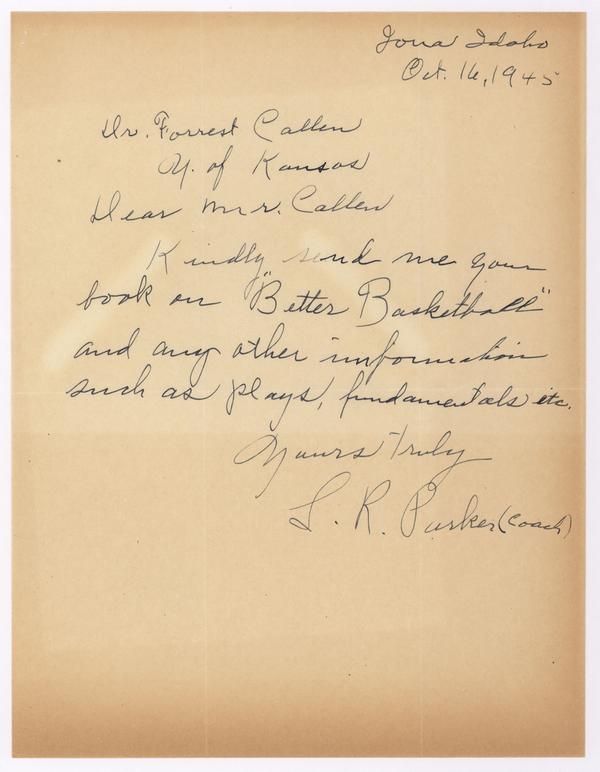 Iona Idaho
Oct. 16, 1945
Dr. Forrest Callen
U. of Kansas
Dear Mr. Callen
Kindly send me your
book on "Better Basketball"
and any other information
such as plays, fundamentals etc.
Yours Truly
L. R. Parker (Coach)